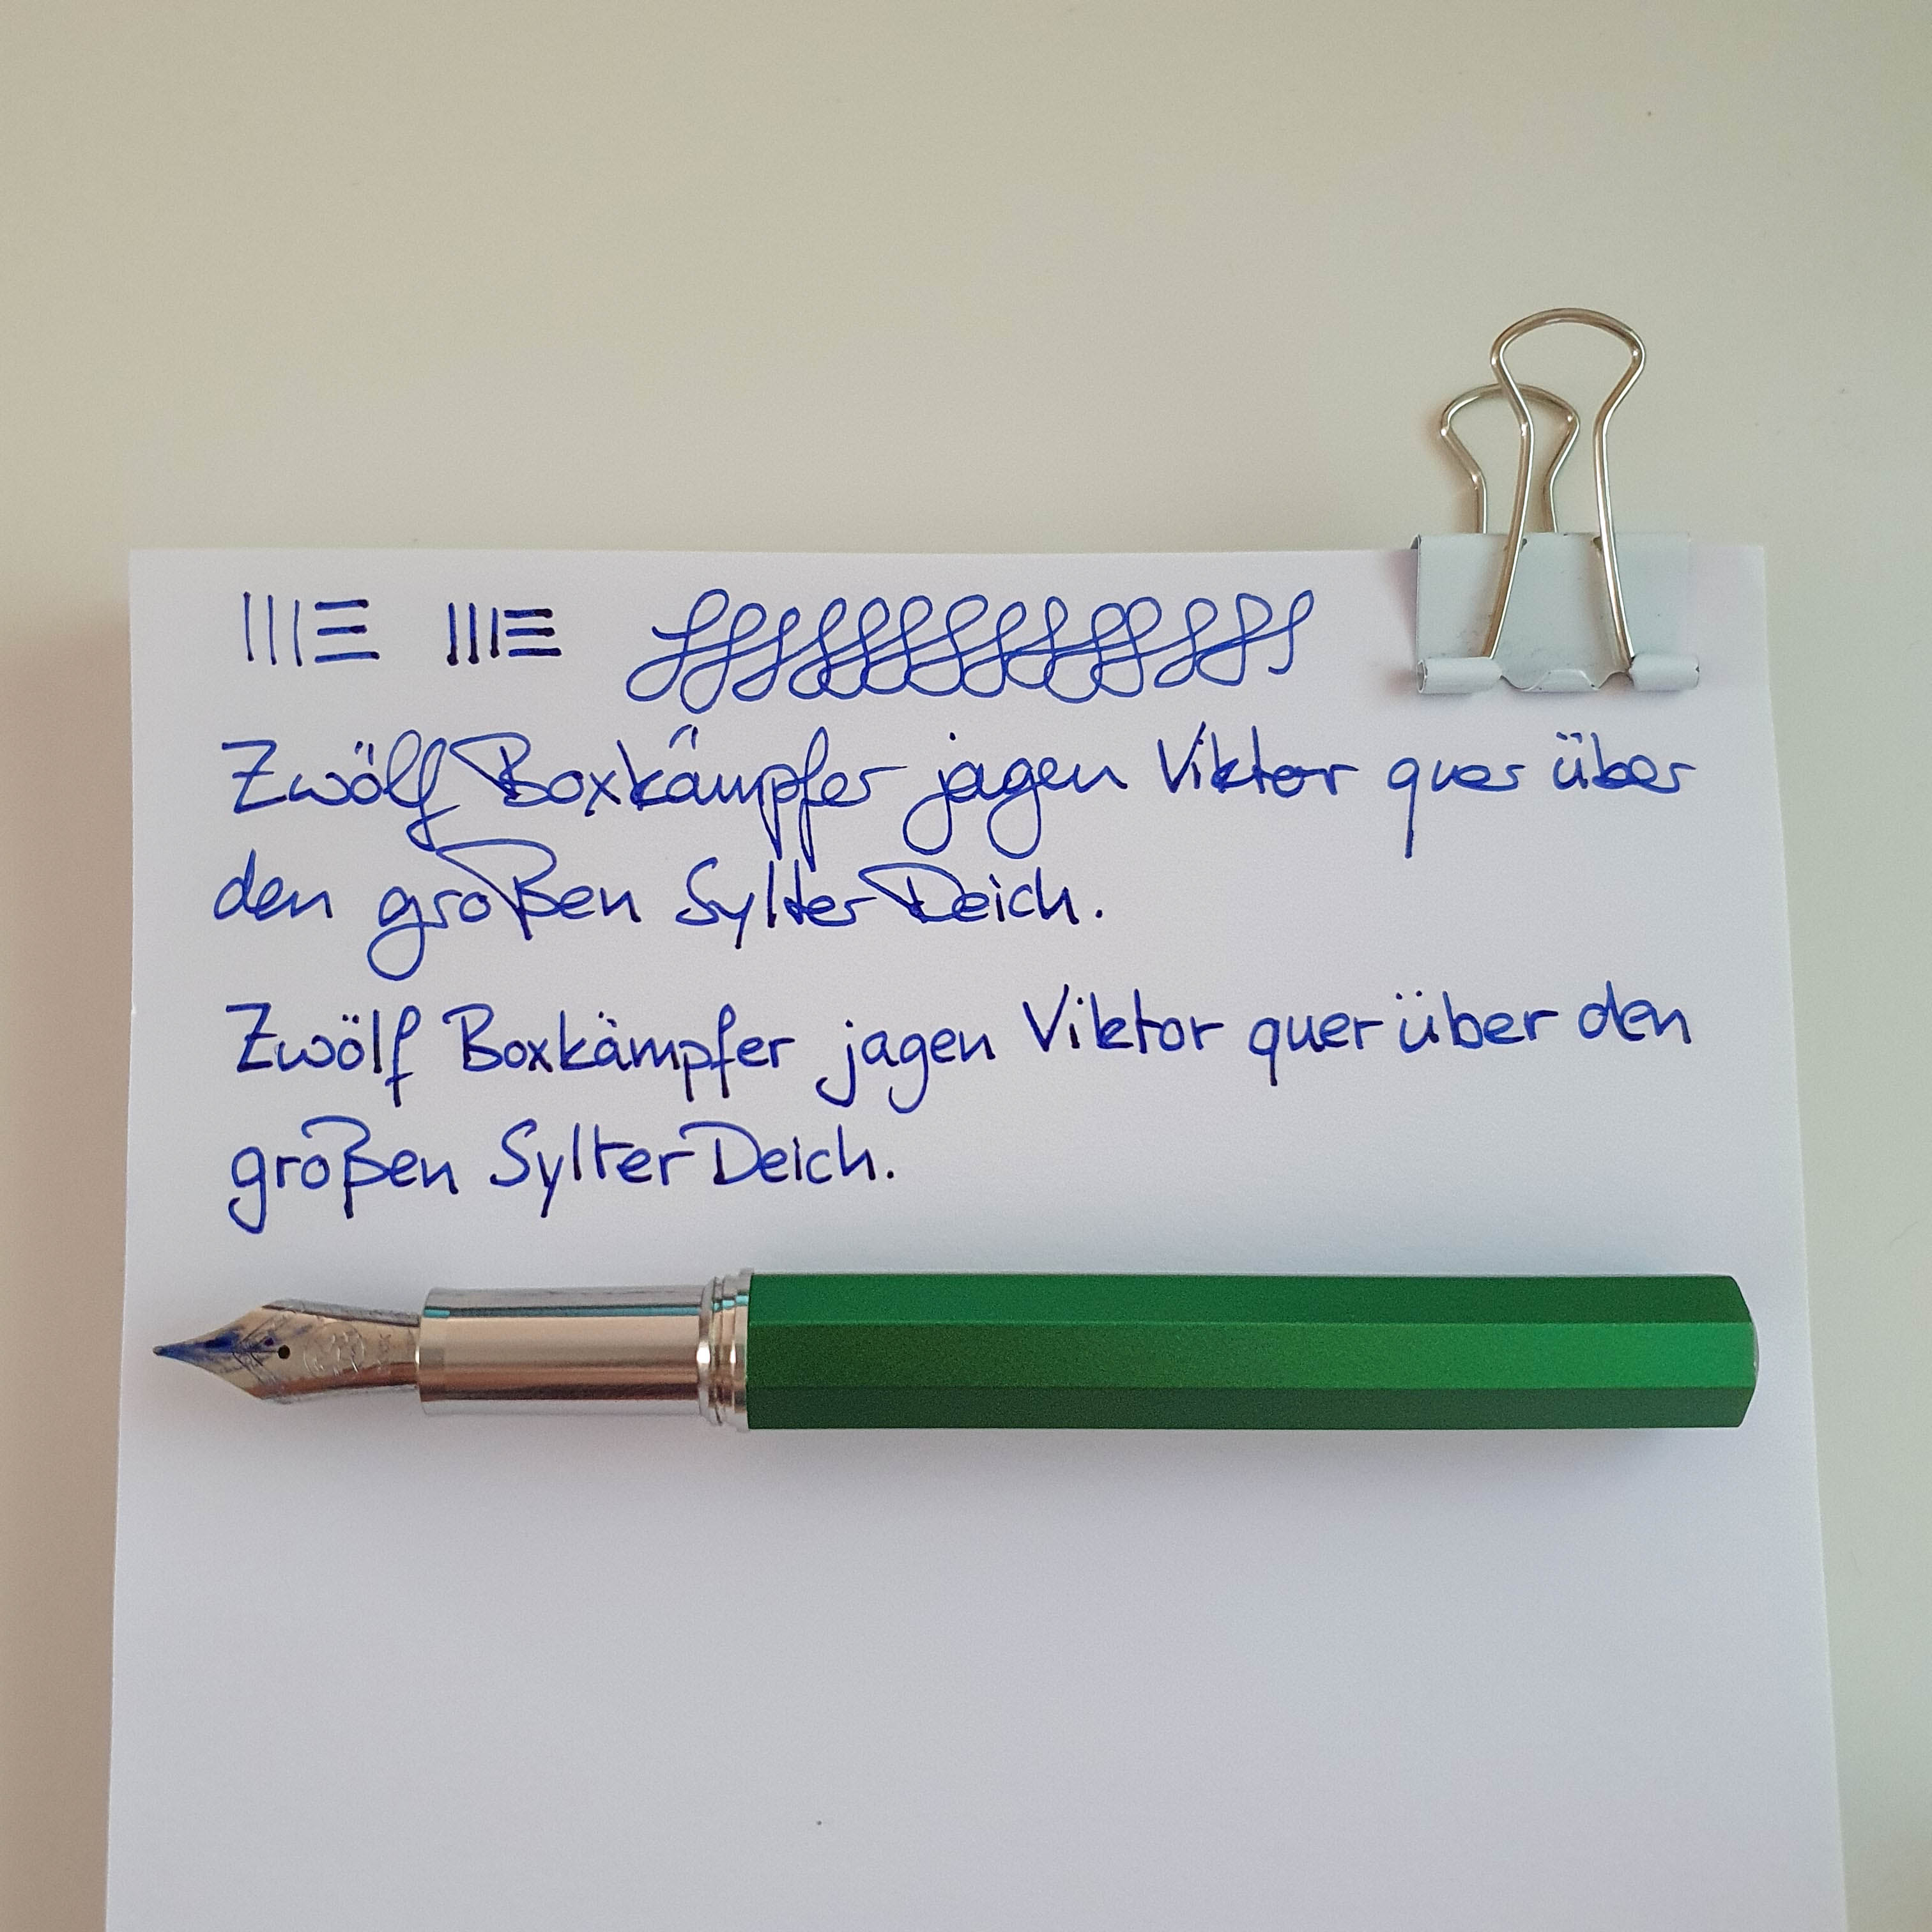 Zwölf Boxkämpfer jagen Viktor quer über
den großen Sylter Deich.
Zwölf Boxkämpfer jagen Viktor quer über den
großen Sylter Deich.